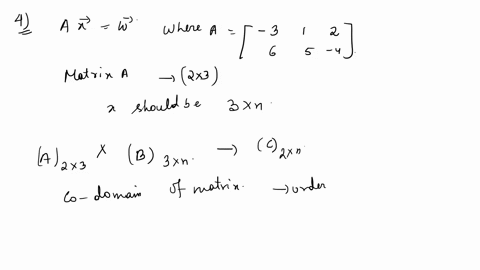 4) A x⃗ = w⃗ where A = [ -3 1 2
6 5 -4 ]
Matrix A → (2x3)
x should be 3 x n
(A)₂ₓ₃ x (B)₃ₓₙ → (C)₂ₓₙ
Co-domain of matrix → order